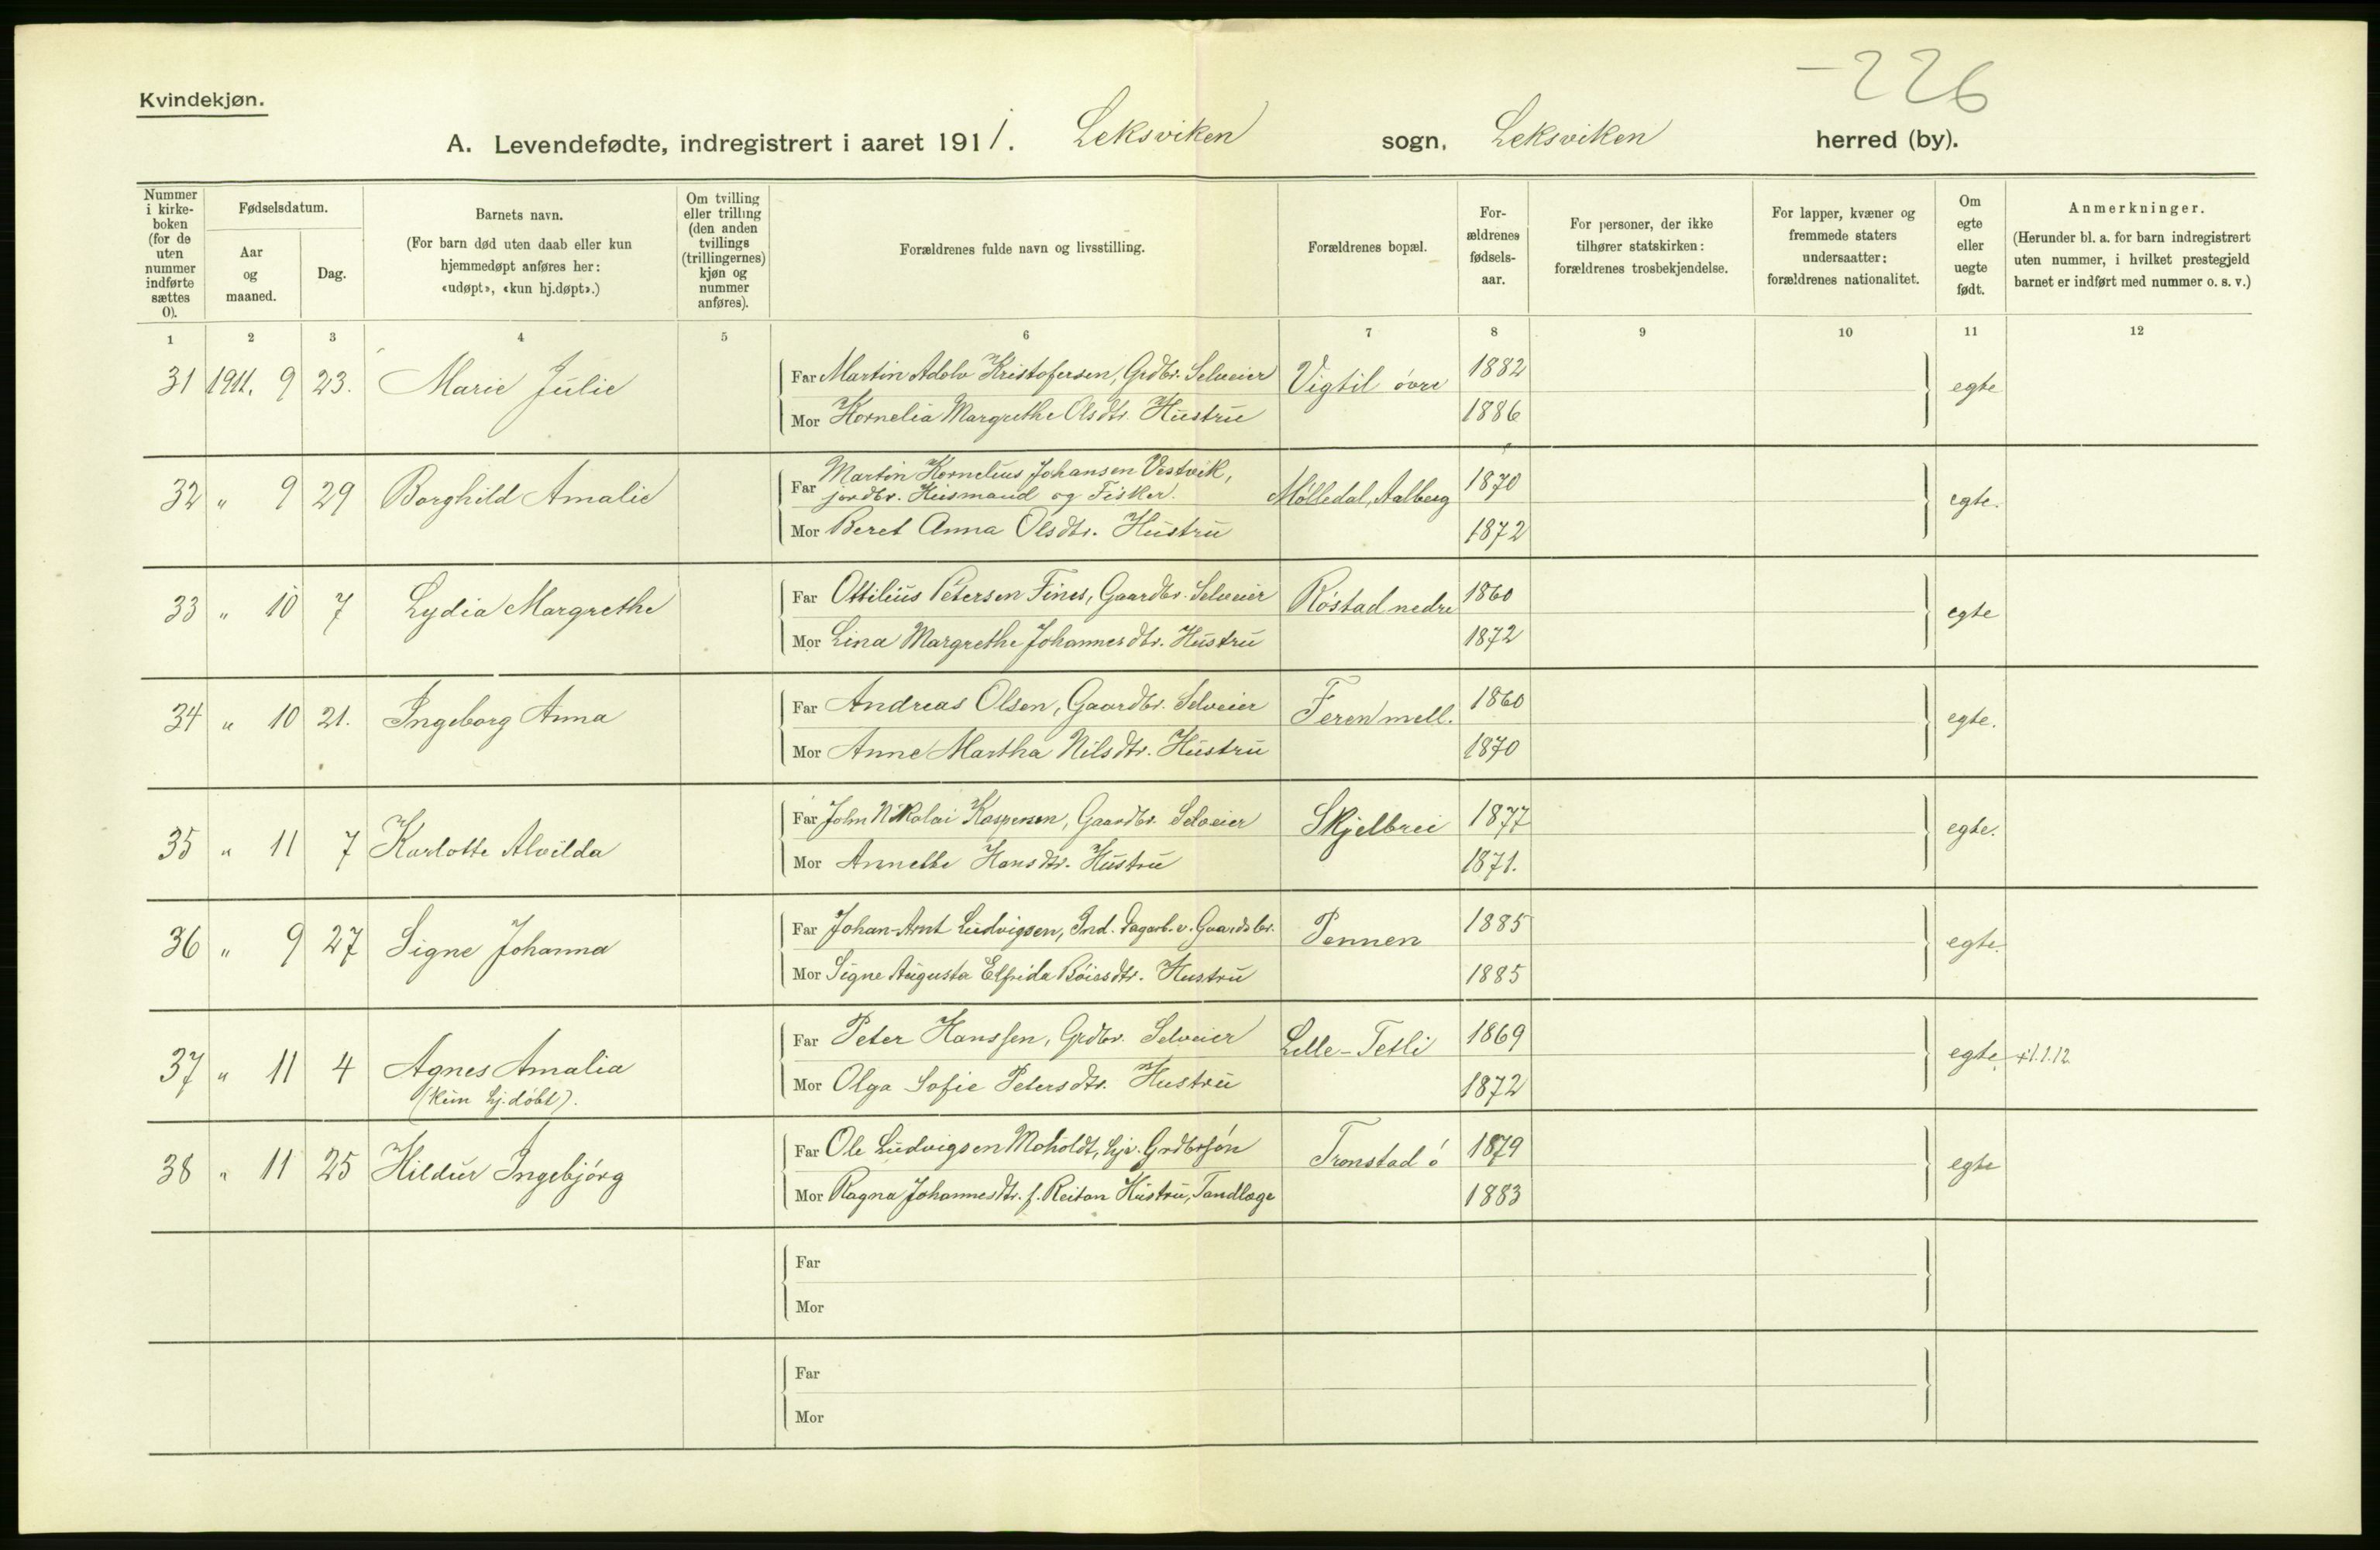 -226
Kvindekjøn.
A. Levendefødte, indregistrert i aaret 1911. Leksviken sogn, Leksviken herred (by).
Nummer i kirke-boken (for de uten nummer indførte sættes 0).
Fødselsdatum.
Aar og maaned.
Dag.
Barnets navn.
(For barn død uten daab eller kun hjemmedøpt anføres her: «udøpt», «kun hj.døpt».)
Om tvilling eller trilling (den anden tvillings (trillingernes) kjøn og nummer anføres).
Forældrenes fulde navn og livsstilling.
Forældrenes bopæl.
For-ældrenes fødsels-aar.
For personer, der ikke tilhører statskirken: forældrenes trosbekjendelse.
For lapper, kvæner og fremmede staters undersaatter: forældrenes nationalitet.
Om egte eller uegte født.
Anmerkninger.
(Herunder bl. a. for barn indregistrert uten nummer, i hvilket prestegjeld barnet er indført med nummer o. s. v.)
1 2 3 4 5 6 7 8 9 10 11 12
31 1911. 9 23. Marie Julie Far Martin Adolv Kristofersen, Grdbr. Selveier Vigtil övre 1882 egte
Mor Kornelia Margrethe Olsdtr. Hustru 1886
32 " 9 29 Borghild Amalie Far Martin Kornelius Johansen Vestvik,
jordbr. Husmand og Fisker. Mölledal, Aalberg 1870 egte.
Mor Beret Anna Olsdtr. Hustru 1872
33 " 10 7 Lydia Margrethe Far Ottilius Petersen Fines, Gaardbr. Selveier Röstad nedre 1860 egte
Mor Lina Margrethe Johannesdtr. Hustru 1872
34 " 10 21. Ingeborg Anna Far Andreas Olsen, Gaardbr. Selveier Feren mell. 1860 egte.
Mor Anne Martha Nilsdtr. Hustru 1870
35 " 11 7 Karlotte Alvilda Far John Nikolai Kaspersen, Gaardbr. Selveier Skjelbrei 1877 egte.
Mor Annette Hansdtr. Hustru 1871.
36 " 9 27 Signe Johanna Far Johan-Arnt Ludvigsen, Ind. Dagarb. v. Gaardsbr. Pennen 1885 egte.
Mor Signe Augusta Elfrida Böiesdtr. Hustru 1885
37 " 11 4 Agnes Amalia Far Peter Hanssen, Grdbr. Selveier Lille-Tetli 1869 egte. +1.1.12.
(Kun hj.döbt). Mor Olga Sofie Petersdtr. Hustru 1872
38 " 11 25 Hildur Ingebjörg Far Ole Ludvigsen Moholdt, hjv. Grdbrsön Tronstad ö 1879 egte
Mor Ragna Johannesdtr. f. Reitan Hustru, Tandlæge 1883
Far
Mor
Far
Mor